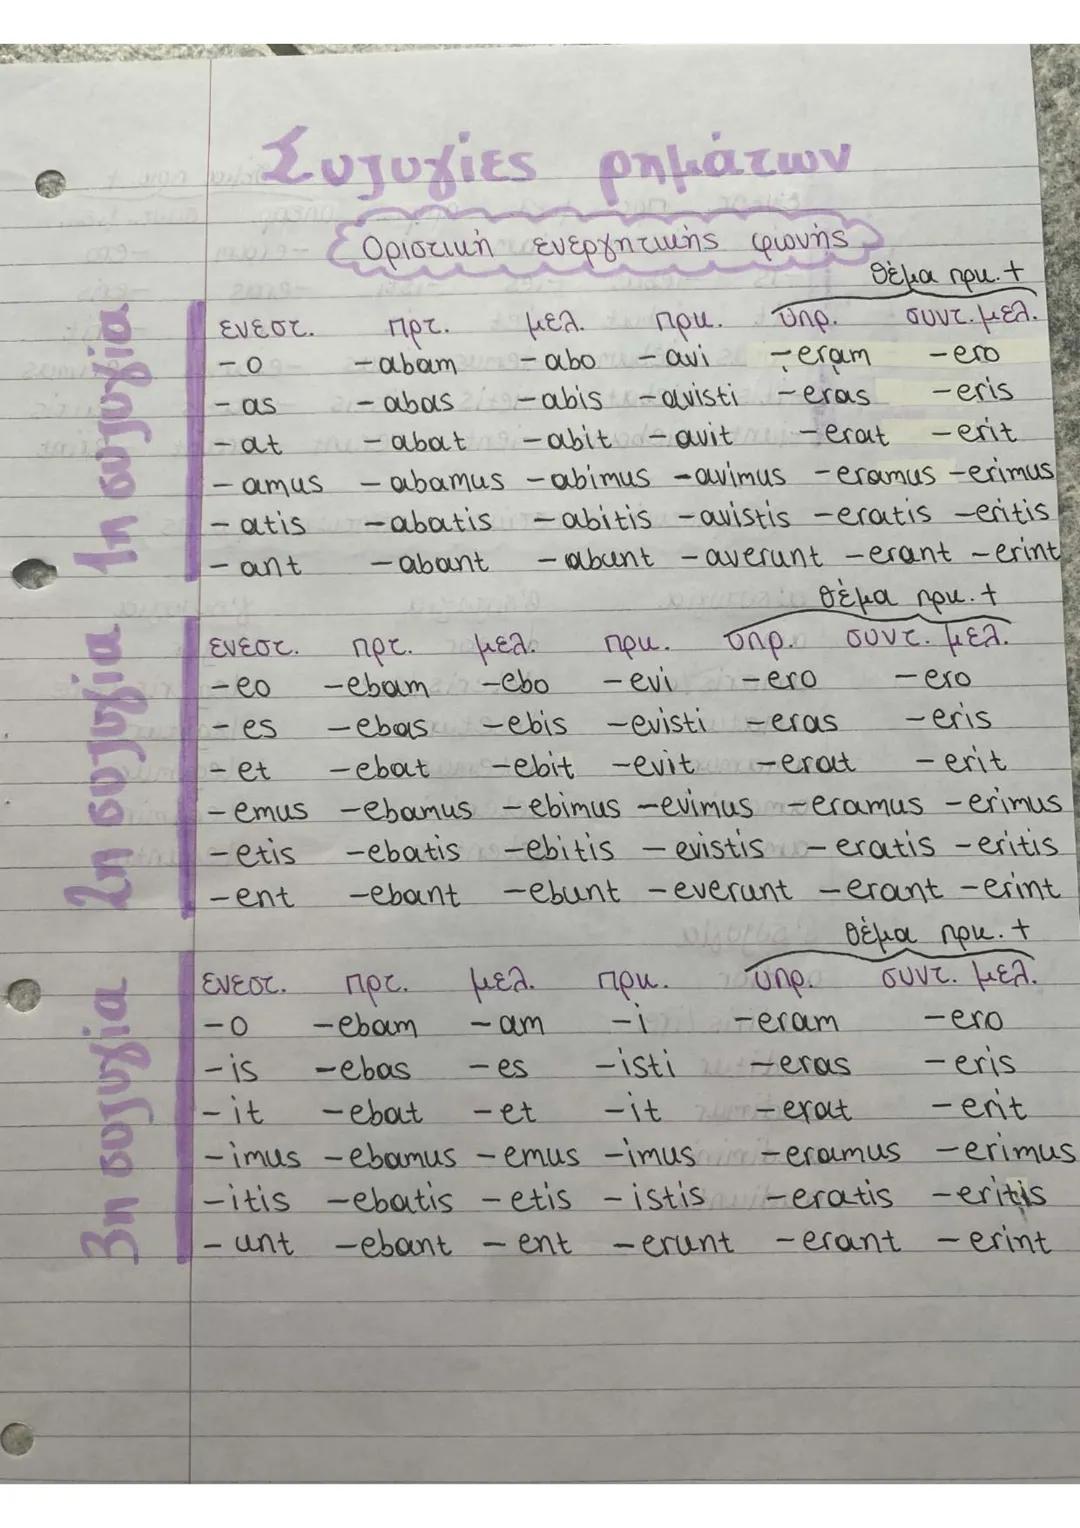 Συζυγίες ρημάτων
Οριστική ενεργητικής φωνής
θέμα πρκ. +
1η συζυγία
ενεστ. πρτ. μελ. πρκ. υπρ. συντ. μελ.
-o -abam -abo -avi -eram -ero
-as -abas -abis -avisti -eras -eris
-at -abat -abit -avit -erat -erit
-amus -abamus -abimus -avimus -eramus -erimus
-atis -abatis -abitis -avistis -eratis -eritis
-ant -abant -abunt -averunt -erant -erint
θέμα πρκ. +
2η συζυγία
ενεστ. πρτ. μελ. πρκ. υπρ. συντ. μελ.
-eo -ebam -ebo -evi -ero -ero
-es -ebas -ebis -evisti -eras -eris
-et -ebat -ebit -evit -erat -erit
-emus -ebamus -ebimus -evimus -eramus -erimus
-etis -ebatis -ebitis -evistis -eratis -eritis
-ent -ebant -ebunt -everunt -erant -erint
θέμα πρκ. +
3η συζυγία
ενεστ. πρτ. μελ. πρκ. υπρ. συντ. μελ.
-o -ebam -am -i -eram -ero
-is -ebas -es -isti -eras -eris
-it -ebat -et -it -erat -erit
-imus -ebamus -emus -imus -eramus -erimus
-itis -ebatis -etis -istis -eratis -eritis
-unt -ebant -ent -erunt -erant -erint